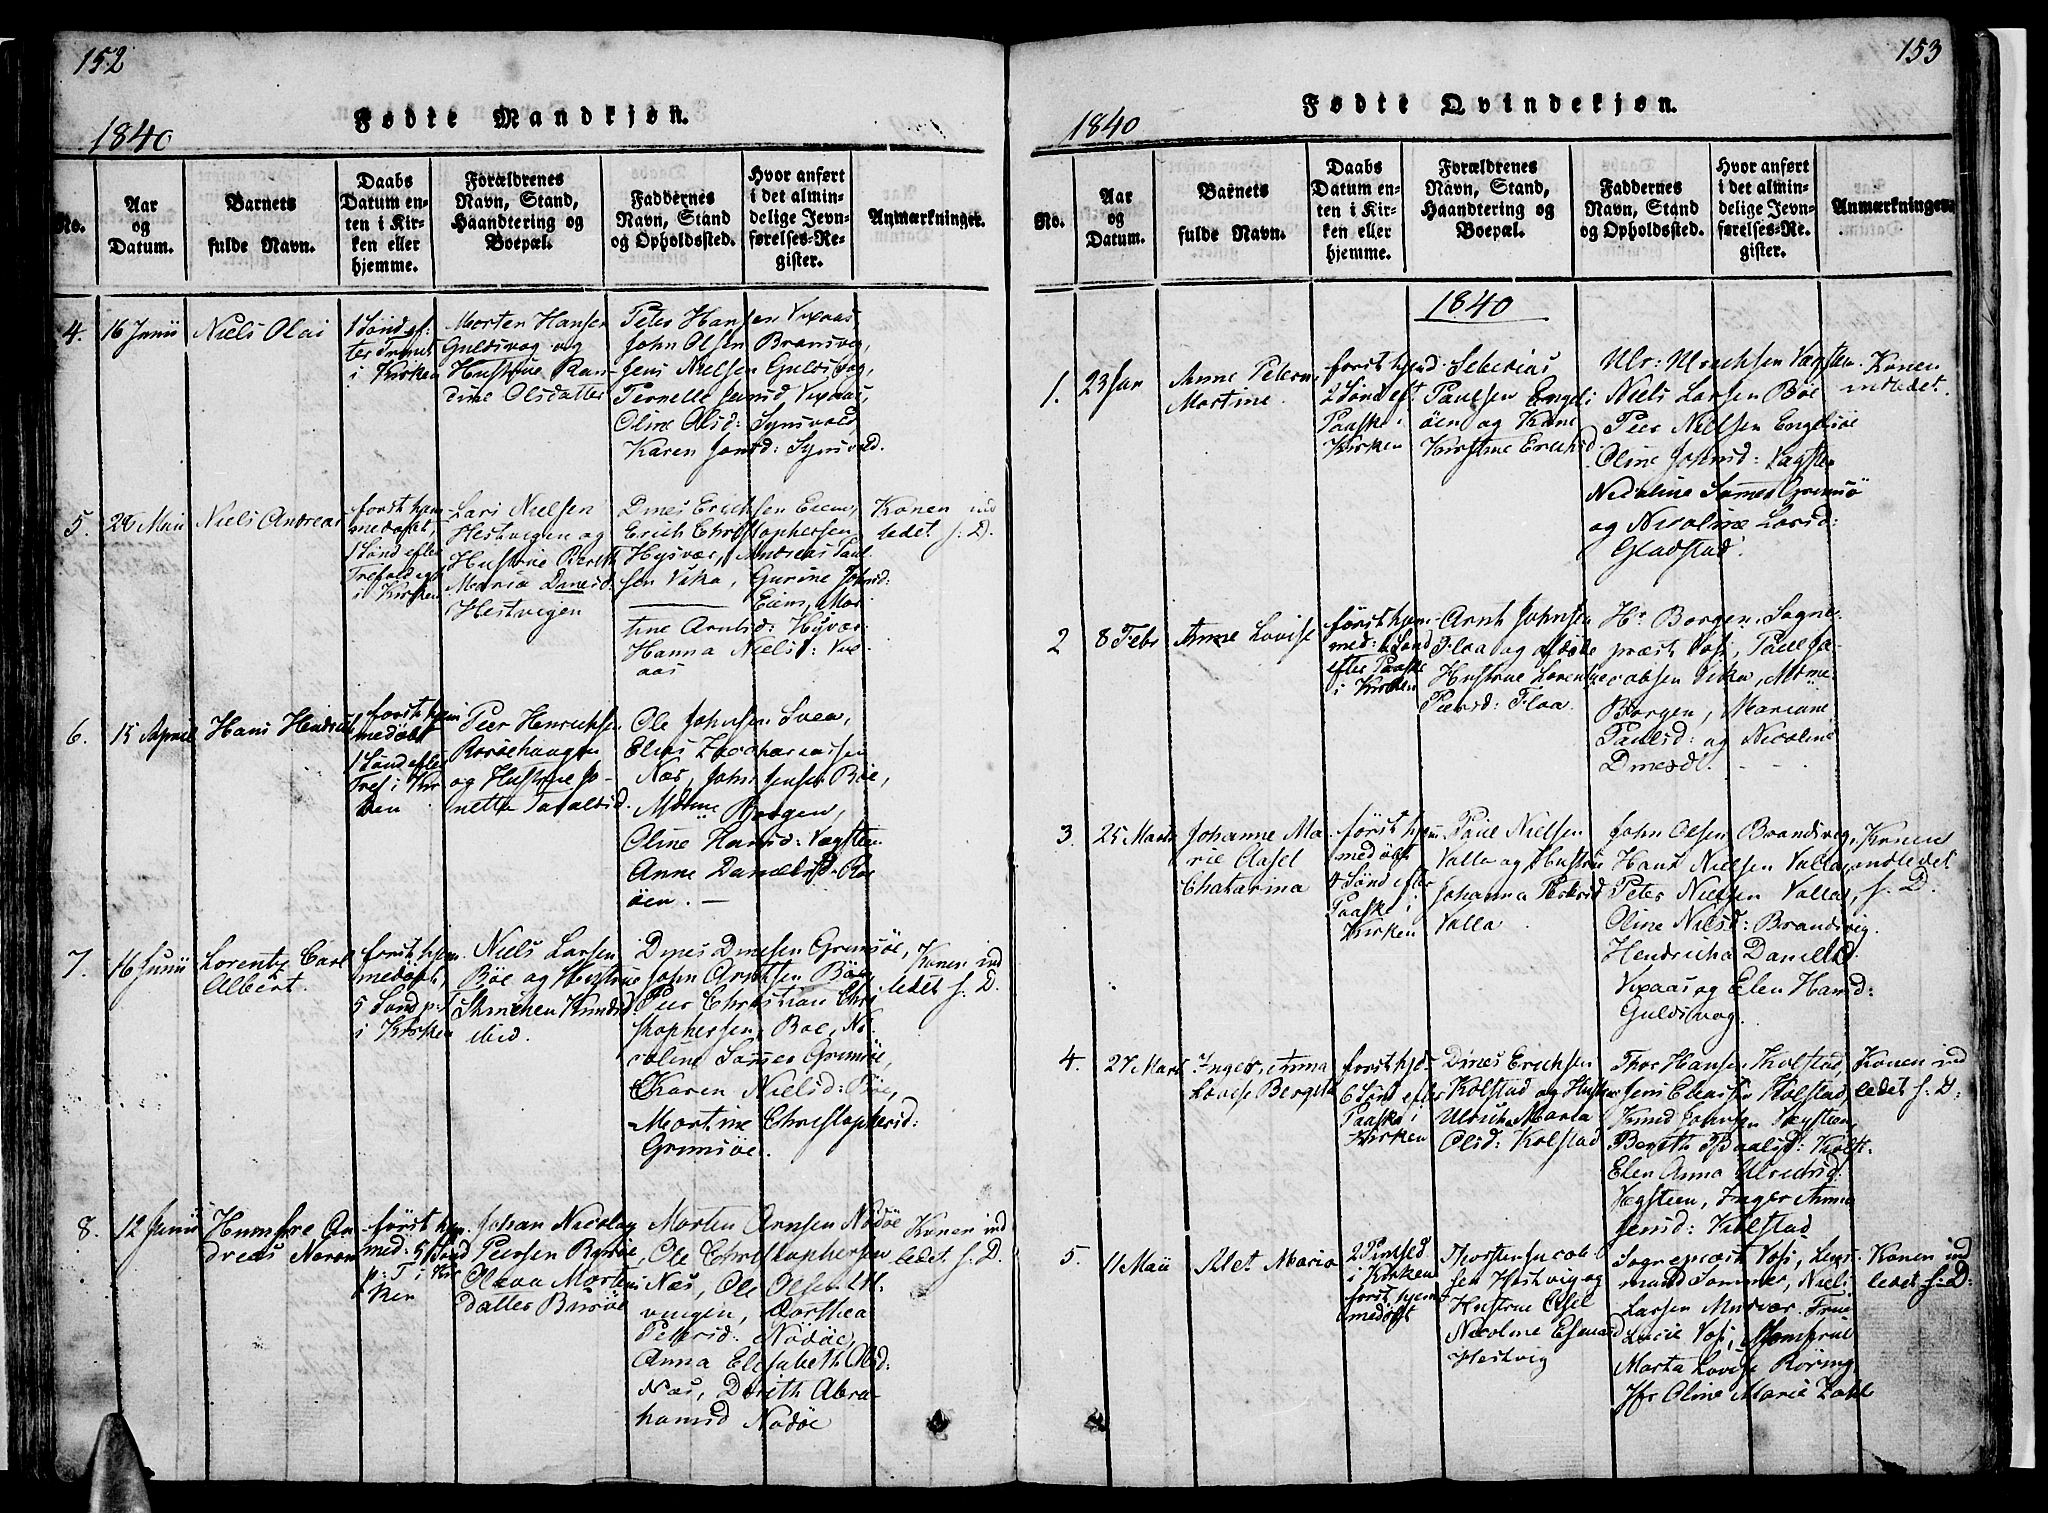 152
Fødte Mandkjøn.
1840
No.
Aar
og
Datum.
Barnets
fulde Navn.
Daabs
Datum en-
ten i Kir-
ken eller
hjemme.
Forældrenes
Navn, Stand,
Haandtering og
Boepæl.
Faddernes
Navn, Stand
og Opholdssted.
Hvor anført
i det almin-
delige Jevn-
førelses-Re-
gister.
Anmærkninger.
4.
16 Junii
Niels Olai
1 Sønd ef-
ter Trinit
i Kirken
Morten Hansen
Guldsvog og
Hustrue Ran-
dine Olsdatter
Peter Hansen Vixaas,
John Olsen Bransvig,
Jens Nielsen Guldsvog,
Pernelle Jensd, Vixaas,
Oline Olsd: Synsvold,
Karen Jonsd: Synsvold.
5.
Maii
Niels Andreas
først hjem-
medøbt,
1 Sønd efter
i Kirken
Lars Nielsen
Hestvigen og
Hustrue Berith
Maria Danesd:
Hestvigen
Dines Erichsen Eiem,
Erich Christophersen
Hysvær, Andreas Paul-
sen Vika, Gurine Johnsd:
Eiem, Mar-
tine Arntsd: Hysvær
Hanna Nielsd: Vix-
aas
Konen ind
ledet f: D.
6.
15 April
Hans Hendrich
først hjem
medøbt
1 Sønd efter
Tref i Kir
ken
Peer Henrichsen
Rorøehaugen
og Hustrue Jo-
netta Taralsd.
Ole Johnsen Svea,
Elias Zacchariassen
Næs, John Jensen Bøe,
Mdme Borgen,
Oline Hansd: Vægsteen
Anne Danielsd Ro
øen. —
7.
16 Junii
Lorentz Carl
Albert.
først hjem
medøbt,
5 Sønd p: T
i Kirken
Niels Larsen
Bøe og Hustrue
Knudsd
Dines Dinesen Grimsøe,
John Arntsen Bøe,
Peer Christian Chri
stophersen, Boe, Ni
coline Sommer Grimsøe,
Karen Nielsd: Bøe,
Martine Christophersd:
Grimsøe.
Konen ind
ledet f: D.
8.
12 Junii
Humfre An
dreas Norum
først hjem.
med: 5 Sønd
p: T i Kir
ken
Johan Nicolay
Peersen Burøe,
Olava Mortens
datter Burøe
Morten Arnsen Nødøe
Ole Christophersen
Næs, Ole Olsen
vingen, Dorthea
Petersd: Nødøe,
Anna Elisabeth Olsd:
Næs, Dorith Abra-
hamsd Nødøe
Konen ind
ledet f: D.
153
Fødte Qvindekjøn.
1840
No.
Aar
og
Datum.
Barnets
fulde Navn.
Daabs
Datum en-
ten i Kir-
ken eller
hjemme.
Forældrenes
Navn, Stand,
Haandtering og
Boepæl.
Faddernes
Navn, Stand
og Opholdssted.
Hvor anført
i det almin-
delige Jevn-
førelses-Re-
gister.
Anmærkninger.
1840
1.
23 Jan
Anne Petern
Martine
først hjmd:
2 Sønd eft
Paaske i
Kirken
Siberius
Paulsen Engels
øen og Kone
Kirstine Erichsd
Ulr: Ulrichsen Vægsteen
Niels Larsen Bøe
Peer Nielsen Engelsøe
Oline Johnsd: Vægsteen
Nicoline Sommer Grimsø
og Nicoline Larsd:
Gladstad.
Konen
indledet.
2
8 Febr
Anne Lovise
først hjem-
med: Sønd
efter Paaske
i Kirken
Arnt Johnsen
Floa og
Hustrue Lorentse
Peersd: Floa.
Hr Borgen, Sogne-
præst Vosi, Paul Ja-
cobsen Vika, Mdme:
Borgen, Mariane
Paulsd: og Nicoline
Dinesd.
3.
25 Marts
Johanne Ma
rie Clasel
Chatarina
først hjem
medøbt
4 Sønd efter
Paaske i
Kirken
Paul Nielsen
Valla og Hustrue
Johanna Petersd
Valla
John Olsen Brandsvig,
Hans Nielsen Valla,
Peter Nielsen Valla,
Oline Nilsd: Brandsvig.
Hendricha Danielsd.
Vixaas og Elen Hansd:
Guldsvog.
Konen
indledet
f: D.
4.
27 Marts
Inger Anna
Lovise Bergita
først hjd-
6 Sønd efter
Paaske i
Kirken
Dines Erichsen
Kolstad og Hustrue
Ulricha Maria
Olsd: Kolstad
Thor Hansen Kolstad,
Jens Clausen Kolstad,
Knud Johnsen Vægsteen,
Bereth Paalsd: Kolst.
Elen Anna Ulrichsd
Vægsteen, Inger Anna
Jensd: Kolstad
Konen ind
ledet f: D:
5.
11 Maii
Alet Maria
2 Pintsed
i Kirken
først hjem
medøbt
Thorsten Jacob
sen Hestvig og
Hustrue Elsel
Nicoline Edvard
Hestvig
Sognepræst Vosi, Lens-
mand Sommer, Niels
Larsen Mudvær. Frue
Lucie Vosi, Jomfrue
Marta Lovise Röring
Jfr Oline Marie Zahl
Konen ind
ledet f: D: